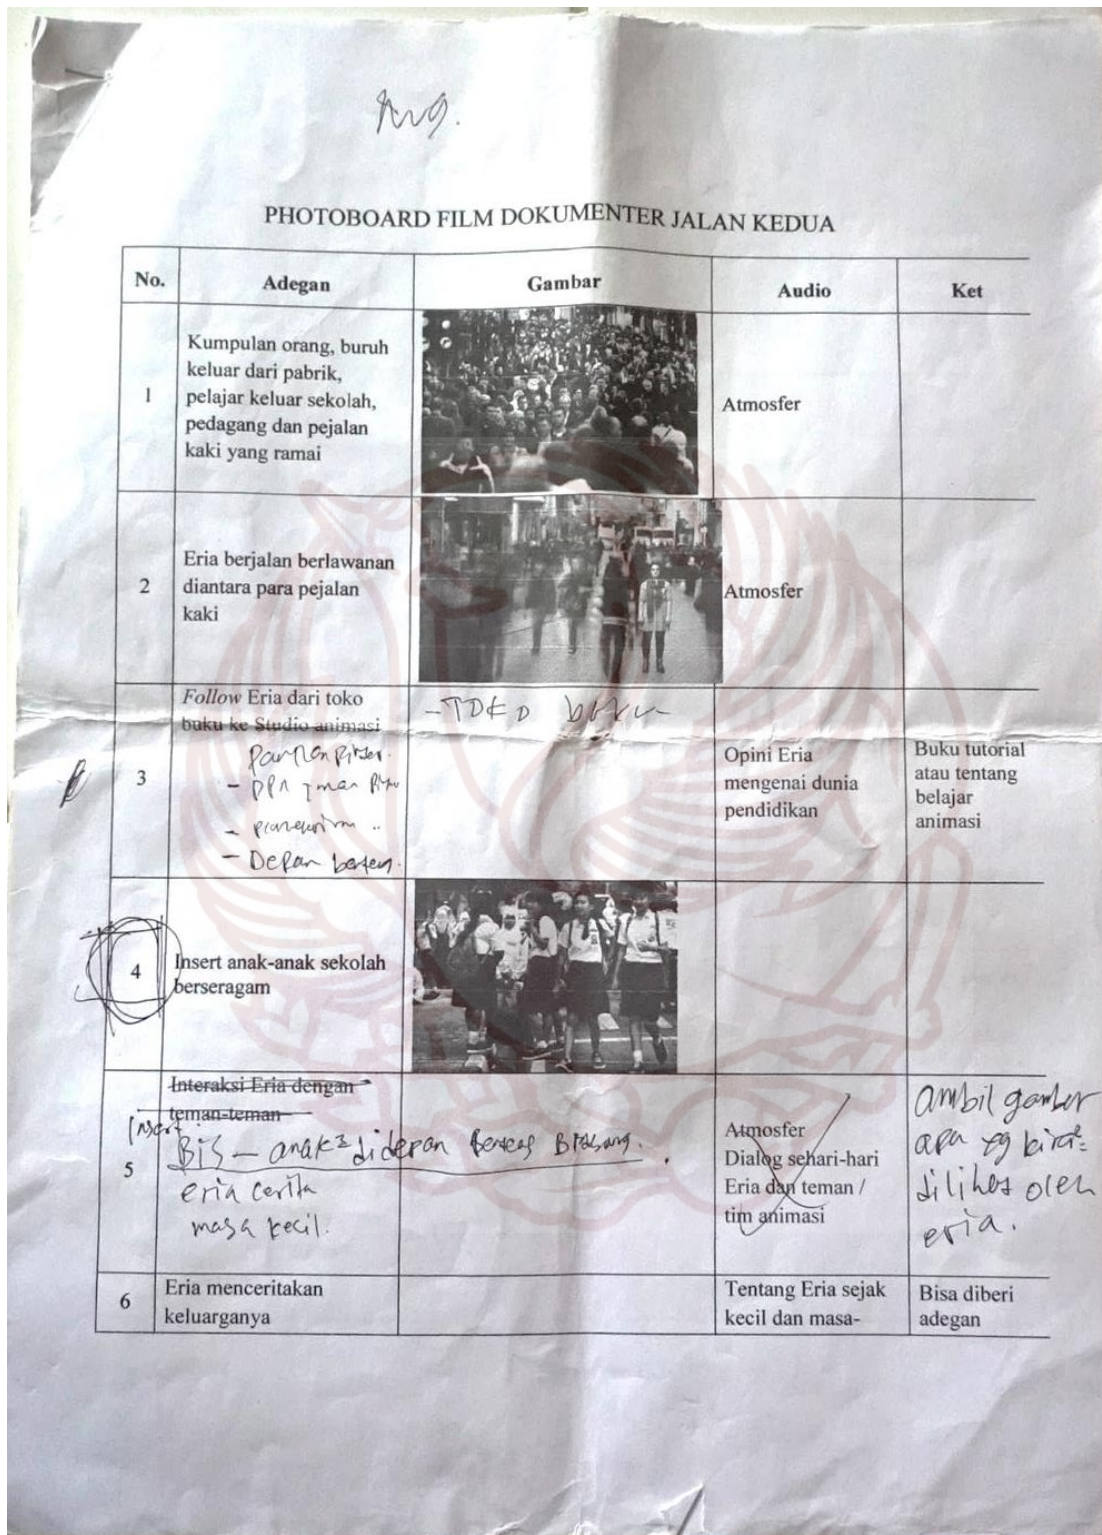 PHOTOBOARD FILM DOKUMENTER JALAN KEDUA
No. Adegan Gambar Audio Ket
1
Kumpulan orang, buruh
keluar dari pabrik,
pelajar keluar sekolah,
pedagang dan pejalan
kaki yang ramai
Atmosfer
2
Eria berjalan berlawanan
diantara para pejalan
kaki
Atmosfer
3
Follow Eria dari toko
buku ke Studio animasi
- Depan
- TOKO buku
Opini Eria
mengenai dunia
pendidikan
Buku tutorial
atau tentang
belajar
animasi
4
Insert anak-anak sekolah
berseragam
5
Interaksi Eria dengan
teman-teman
Insert
Bis - anak2 didepan
eria cerita
masa kecil.
Atmosfer
Dialog sehari-hari
Eria dan teman /
tim animasi
ambil gambar
apa yg kira2
dilihat oleh
eria.
6
Eria menceritakan
keluarganya
Tentang Eria sejak
kecil dan masa-
Bisa diberi
adegan